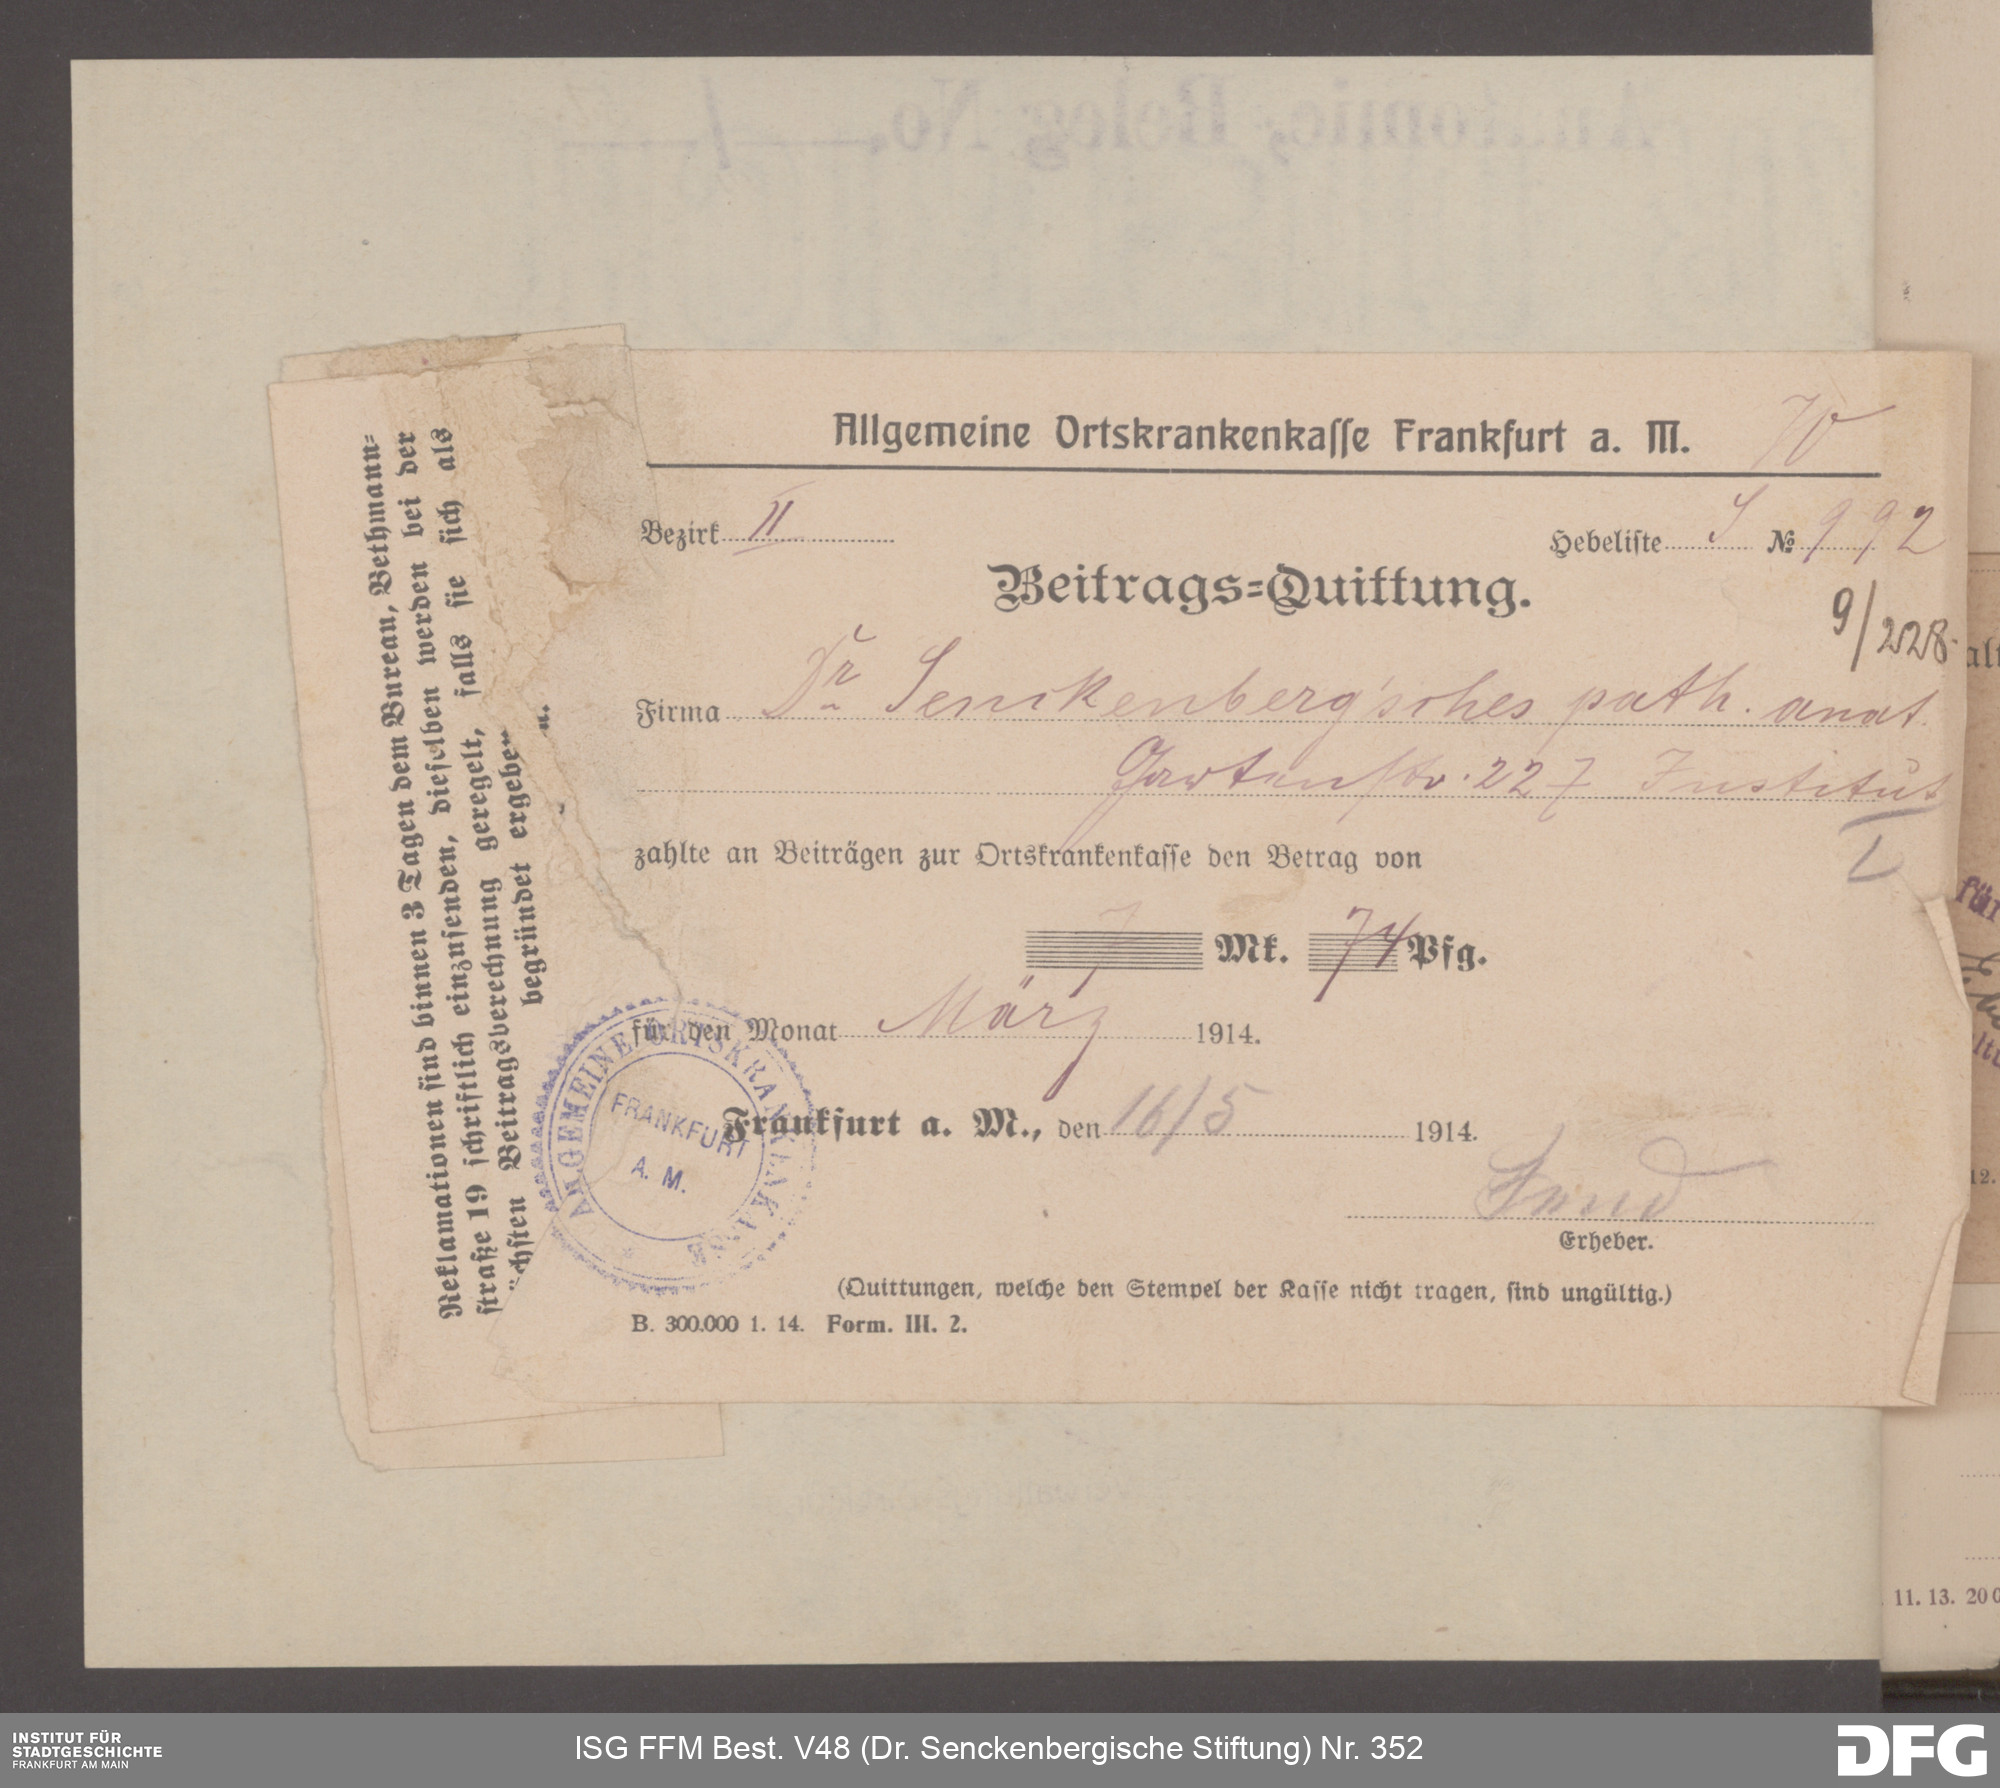 Allgemeine Ortskrankenkasse Frankfurt a. M.
Bezirk II
Hebeliste S № 992
Beitrags=Quittung.
9/228.
Firma Dr Senckenberg'sches path. anat
Gartenstr. 227 Institut
zahlte an Beiträgen zur Ortskrankenkasse den Betrag von
7 Mk. 74 Pfg.
für den Monat März 1914.
Frankfurt a. M., den 16/5 1914.
Erheber.
(Quittungen, welche den Stempel der Kasse nicht tragen, sind ungültig.)
B. 300.000 1. 14. Form. III. 2.
ALLGEMEINE ORTSKRANKENKASSE
FRANKFURT
A. M.
Reklamationen sind binnen 3 Tagen dem Bureau, Bethmann=
straße 19 schriftlich einzusenden, dieselben werden bei der
nächsten Beitragsberechnung geregelt, falls sie sich als
begründet ergeben
Anatomie, Beleg No.
für
12.
11. 13. 200
INSTITUT FÜR
STADTGESCHICHTE
FRANKFURT AM MAIN
ISG FFM Best. V48 (Dr. Senckenbergische Stiftung) Nr. 352
DFG